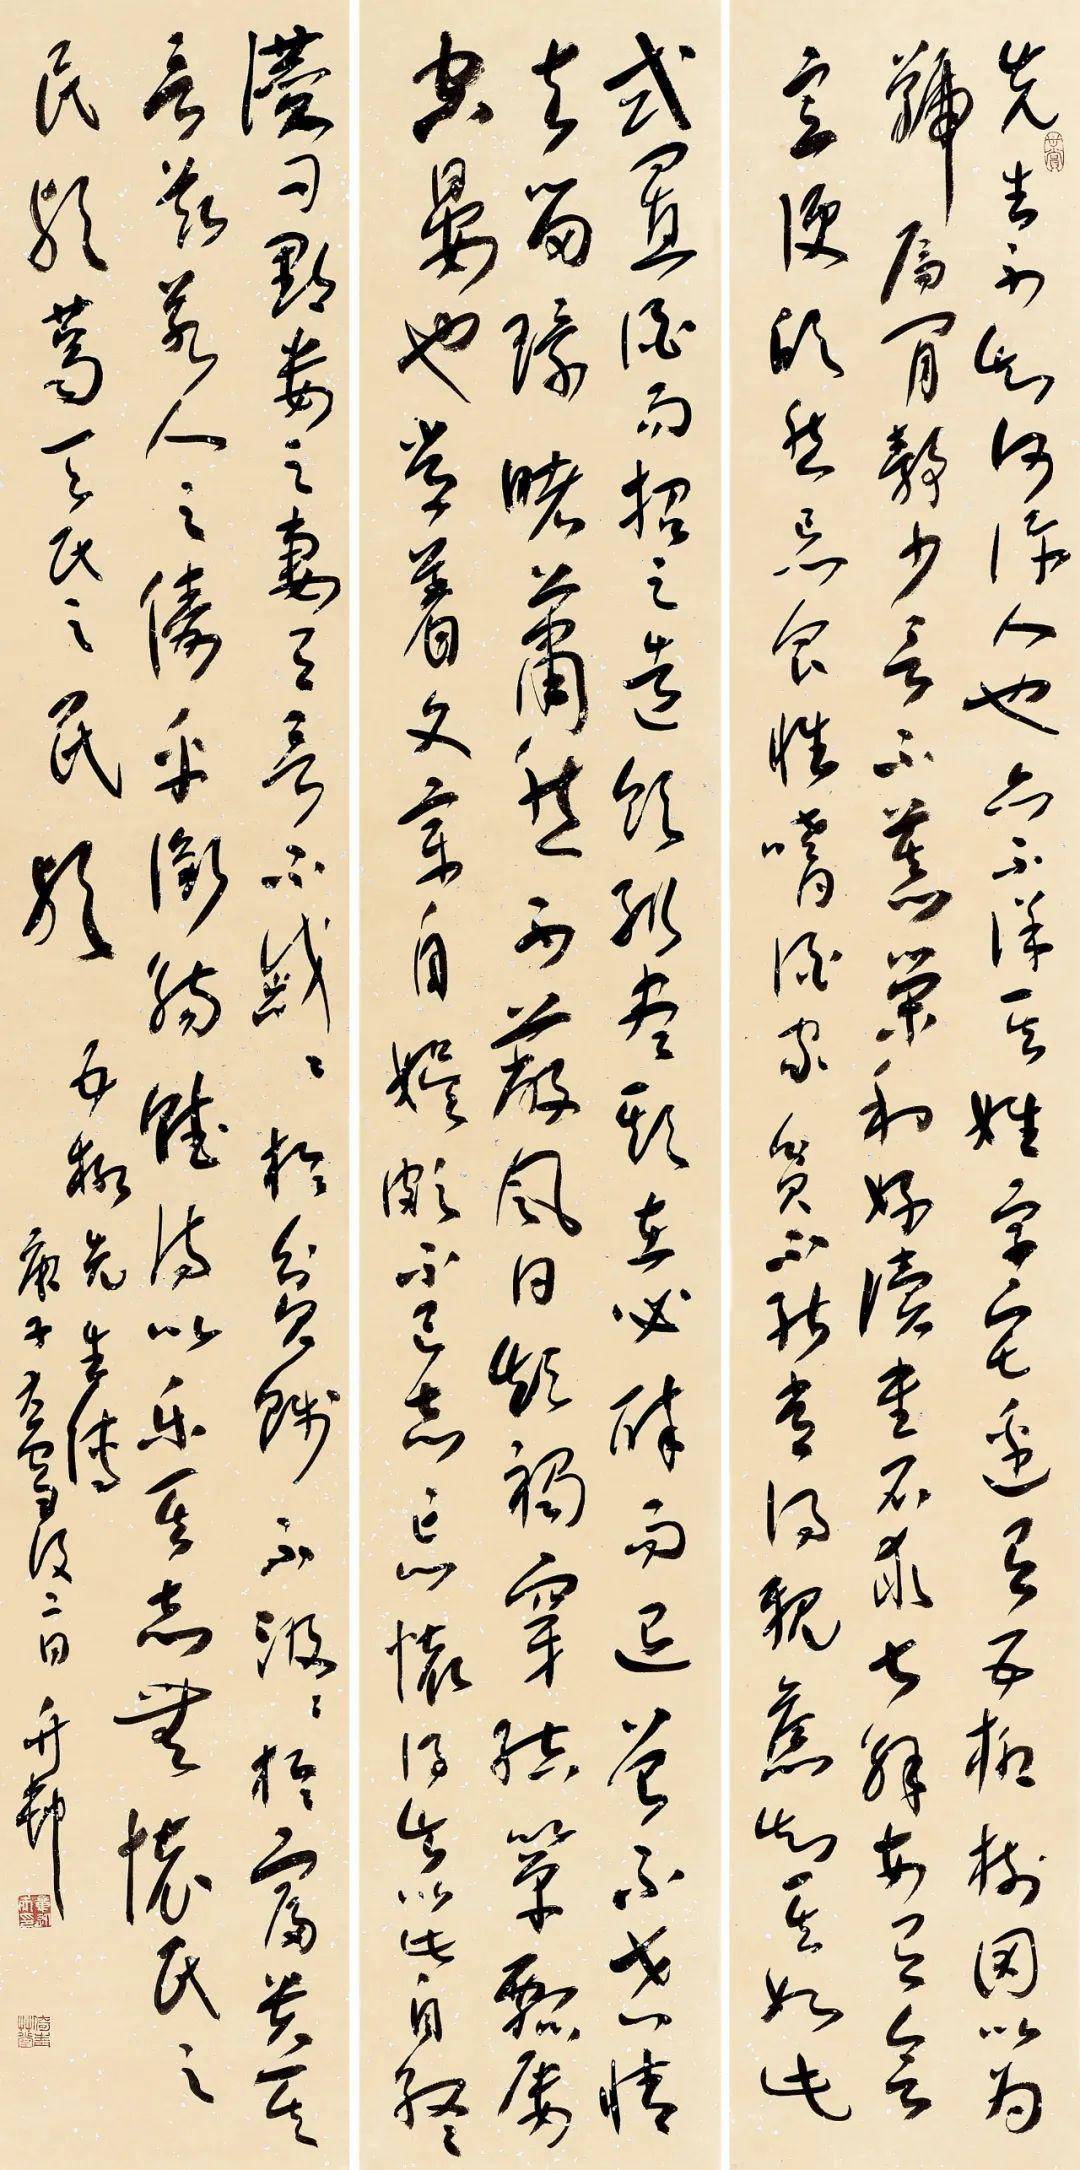 先生不知何許人也亦不詳其姓字宅邊有五柳樹因以为
號焉閒靜少言不慕榮利好讀書不求甚解每有會
意便欣然忘食性嗜酒家貧不能常得親舊知其如此
或置酒而招之造飲輒盡期在必醉而退曾不吝情
去留環堵蕭然不蔽風日短褐穿結簞瓢屢
空晏也常著文章自娛頗示己志忘懷得失以此自終
讚曰黔婁之妻有言不戚〻於貧賤不汲〻於富貴其
言茲若人之儔乎銜觴賦詩以乐其志無懷氏之
民歟葛天氏之民歟
五柳先生傳
庚子大雪後二日